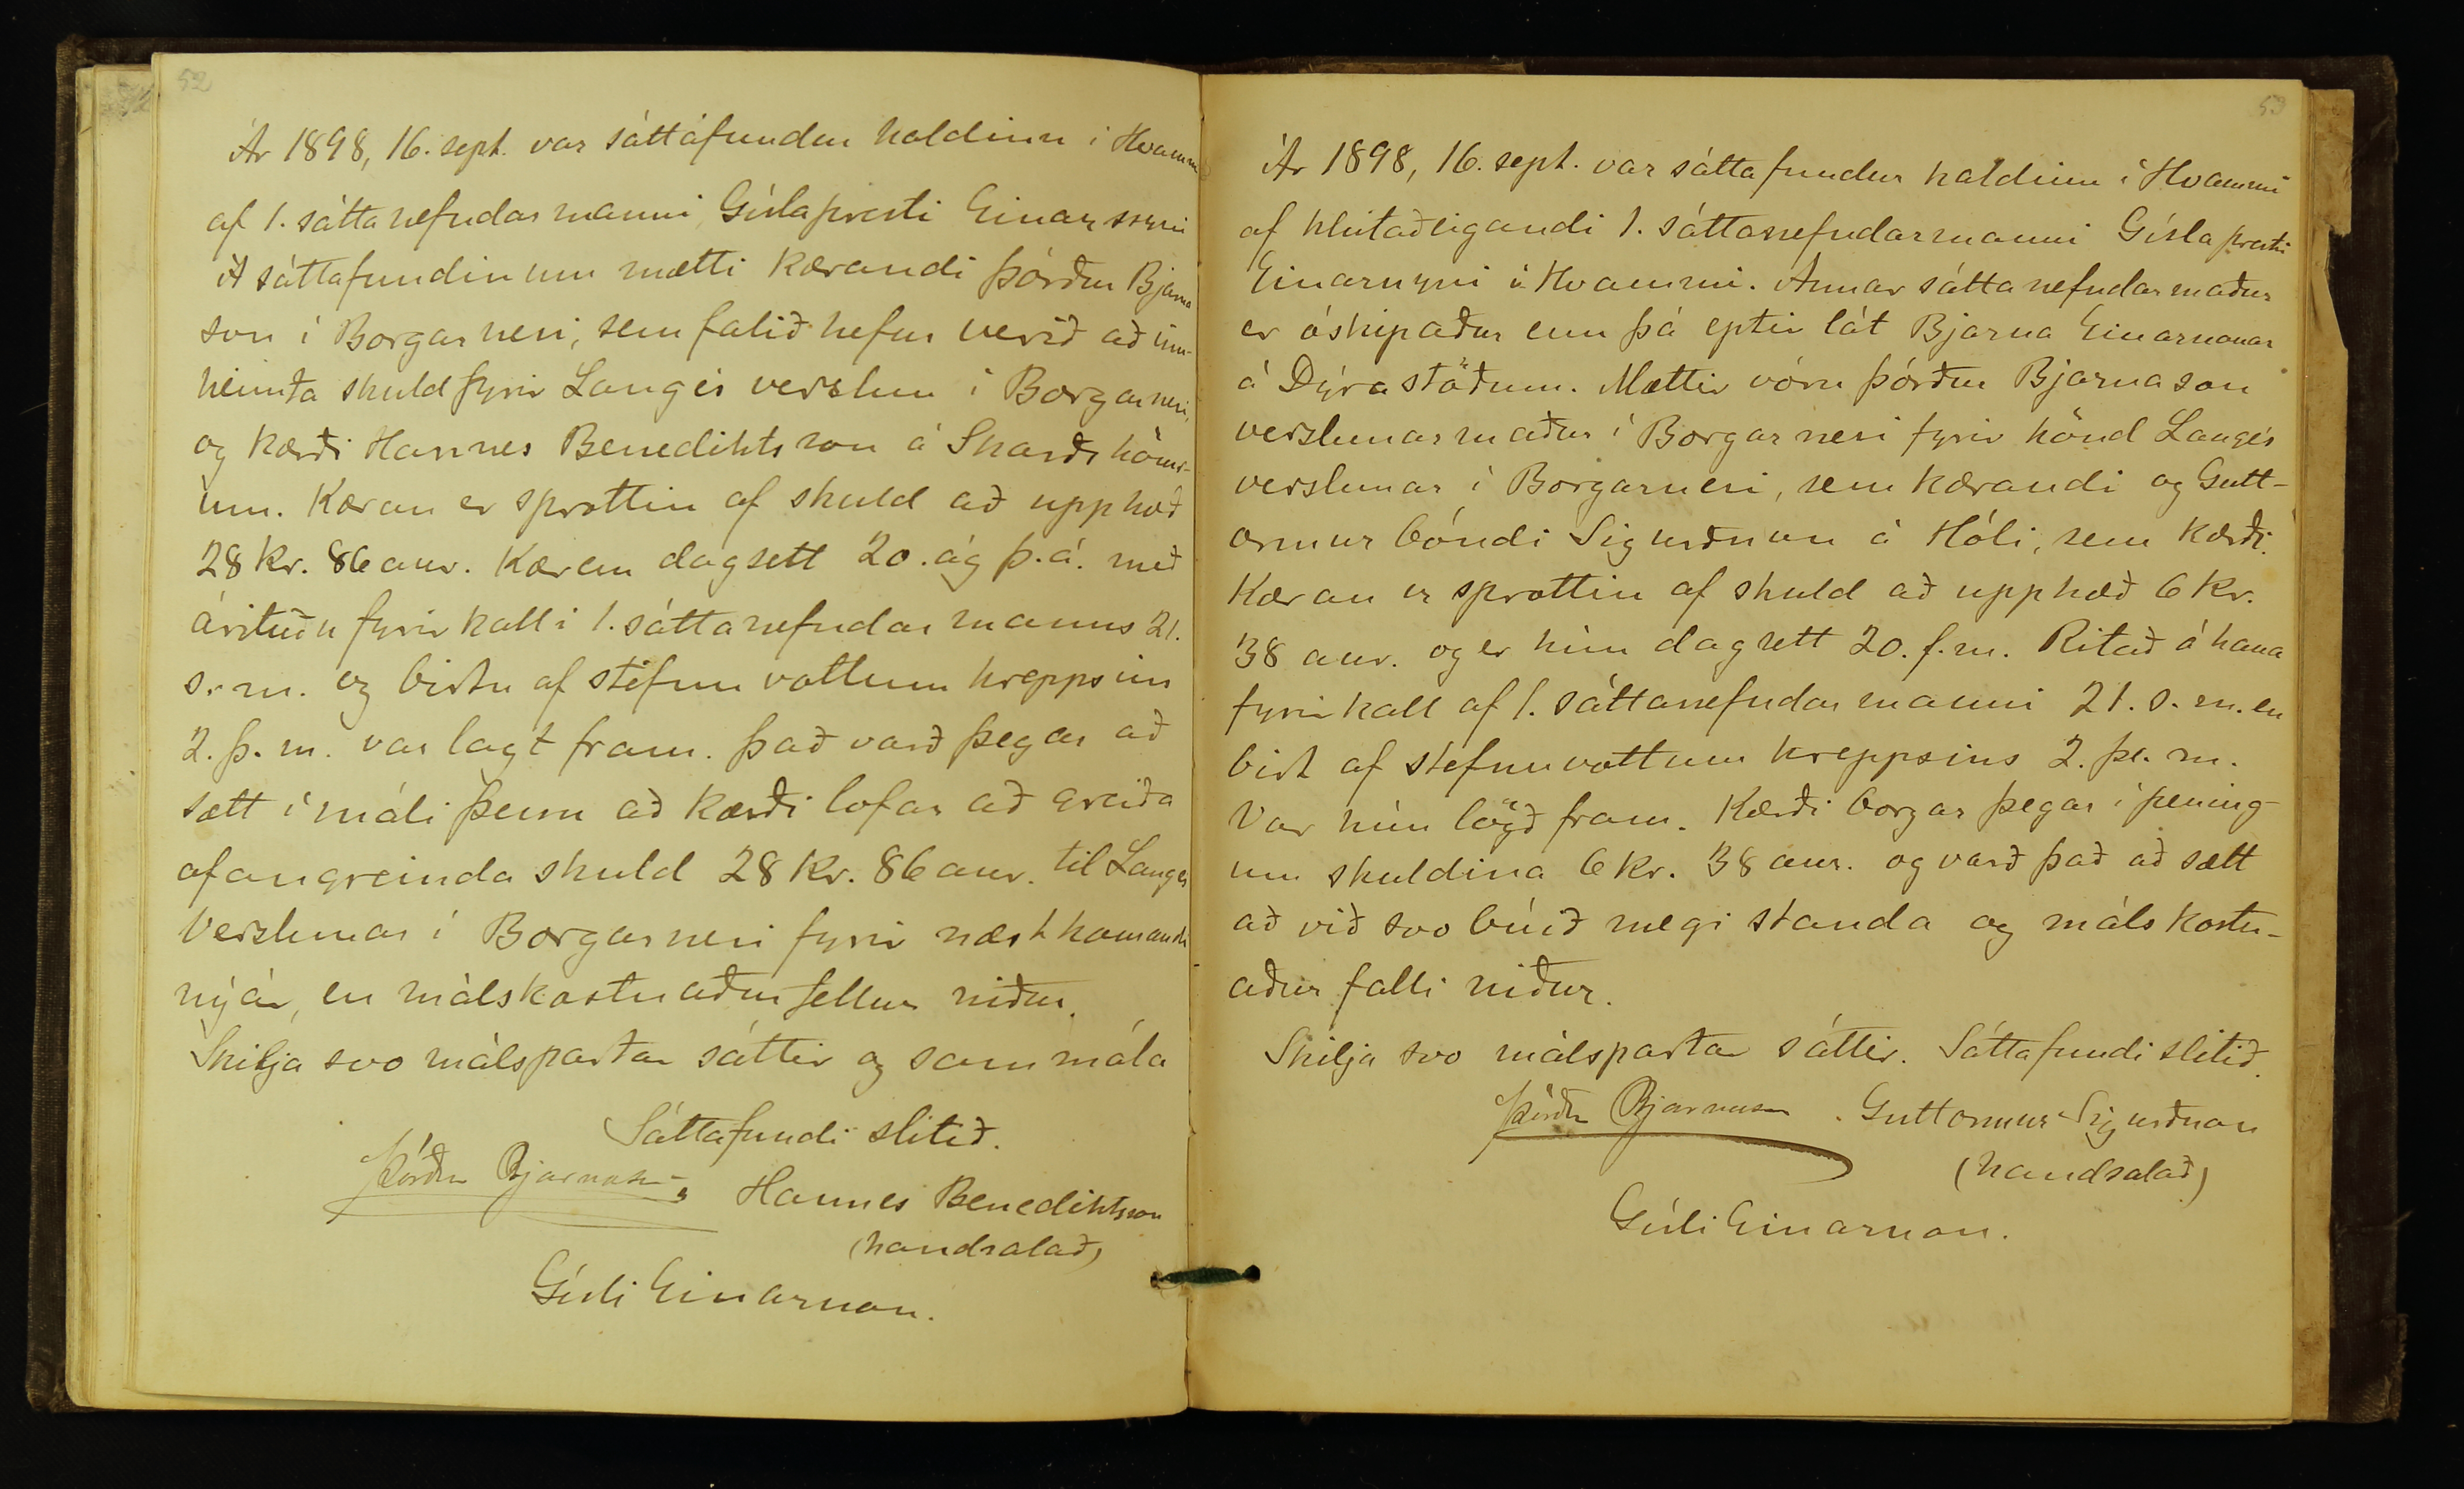 52
Ár 1898, 16. sept. var sáttafundur haldinn í Hvammi
af 1. sáttanefndarmanni, Gísla presti Einarssyni
Á sáttafundinum mætti kærandi Þórður Bjarna
son í Borgarnesi, sem falið hefur verið að inn-
heimta skuld fyrir Langes verslun í Borgarnesi,
og kærði Hannes Benediktsson á Skarðshömr-
um. Kæran er sprottin af skuld að upphæð
28 kr. 86 aur. Kæran dagsett 20. ág þ.á. með
árituðu fyrirkalli 1. sáttanefndarmanns 21.
s.m. og birtu af stefnuvottum hreppsins
2. þ.m. var lagt fram. Það varð þegar að
sætt í máli þessu að kærði lofar að greiða
ofangreinda skuld 28 kr. 86 aur. til Langes
verslunar í Borgarnesi fyrir næstkomandi
nýár, en málskostnaður fellur niður.
Skilja svo málspartar sáttir og sammála
Sáttafundi slitið.
Þórður Bjarnason, Hannes Benediktsson
(handsalað)
Gísli Einarsson.
53
Ár 1898, 16. sept. var sáttafundur haldinn í Hvammi
af hlutaðeigandi 1. sáttanefndarmanni Gísla presti
Einarssyni í Hvammi. Annar sáttanefndarmaður
er óskipaður enn þá eptir lát Bjarna Einarssonar
á Dýrastöðum. Mættir vóru Þórður Bjarnason
verslunarmaður í Borgarnesi fyrir hönd Langes
verslunar í Borgarnesi, sem kærandi og Gutt-
ormur bóndi Sigurðsson á Hóli, sem kærði.
Kæran er sprottin af skuld að upphæð 6 kr.
38 aur. og er hún dagsett 20. f.m. Ritað á hana
fyrirkall af 1. sáttanefndarmanni 21. s.m. en
birt af stefnuvottum hreppsins 2. þ. m.
Var hún lögð fram. Kærði borgar þegar í pening-
um skuldina 6 kr. 38 aur. og varð það að sætt
að við svo búið megi standa og málskostn-
aður falli niður.
Skilja svo málspartar sáttir. Sáttafundi slitið.
Þórður Bjarnason. Guttormur Sigurðsson
(handsalað)
Gísli Einarsson.